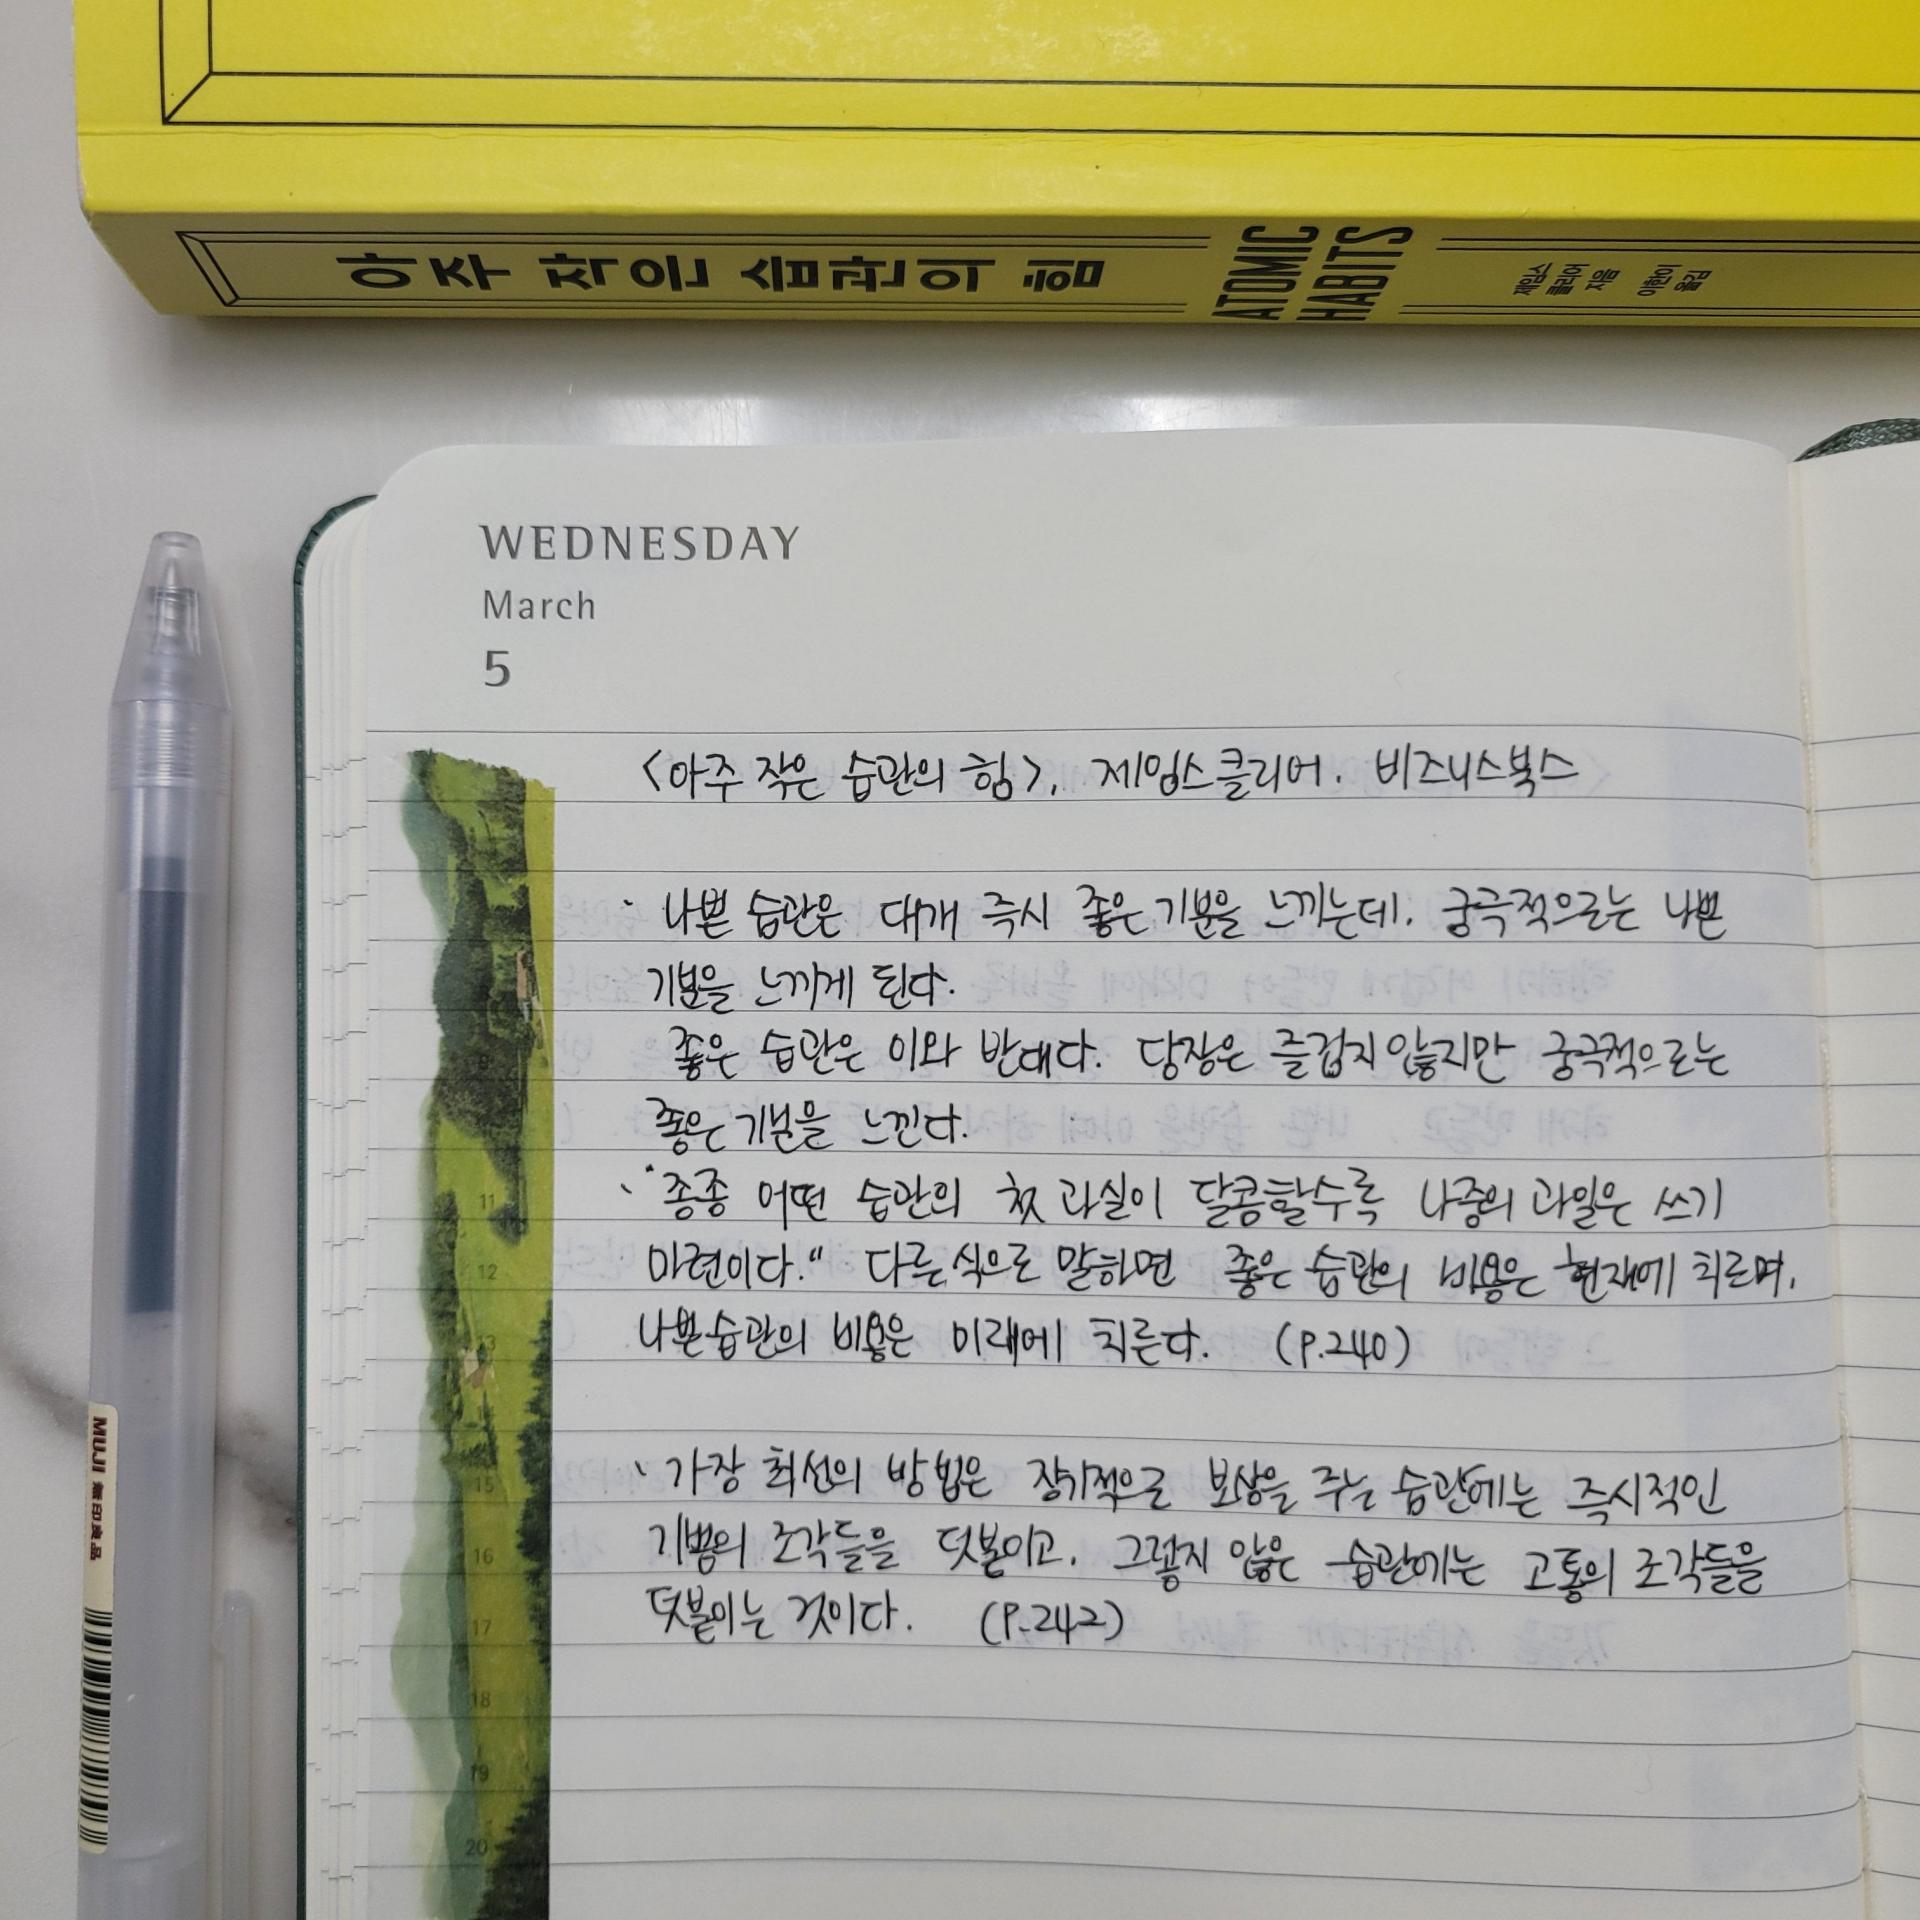 아주 작은 습관의 힘
ATOMIC
HABITS
제임스
클리어
지음
이한이
옮김
WEDNESDAY
March
5
<아주 작은 습관의 힘>, 제임스클리어. 비즈니스북스
· 나쁜 습관은 대개 즉시 좋은 기분을 느끼는데, 궁극적으로는 나쁜
기분을 느끼게 된다.
좋은 습관은 이와 반대다. 당장은 즐겁지 않지만 궁극적으로는
좋은 기분을 느낀다.
· "종종 어떤 습관의 첫 과실이 달콤할수록 나중의 과일은 쓰기
마련이다." 다른 식으로 말하면 좋은 습관의 비용은 현재에 치르며,
나쁜 습관의 비용은 미래에 치른다. (P.240)
· 가장 최선의 방법은 장기적으로 보상을 주는 습관에는 즉시적인
기쁨의 조각들을 덧붙이고, 그렇지 않은 습관에는 고통의 조각들을
덧붙이는 것이다. (P.242)
11
12
13
15
16
17
18
19
20
MUJI 無印良品